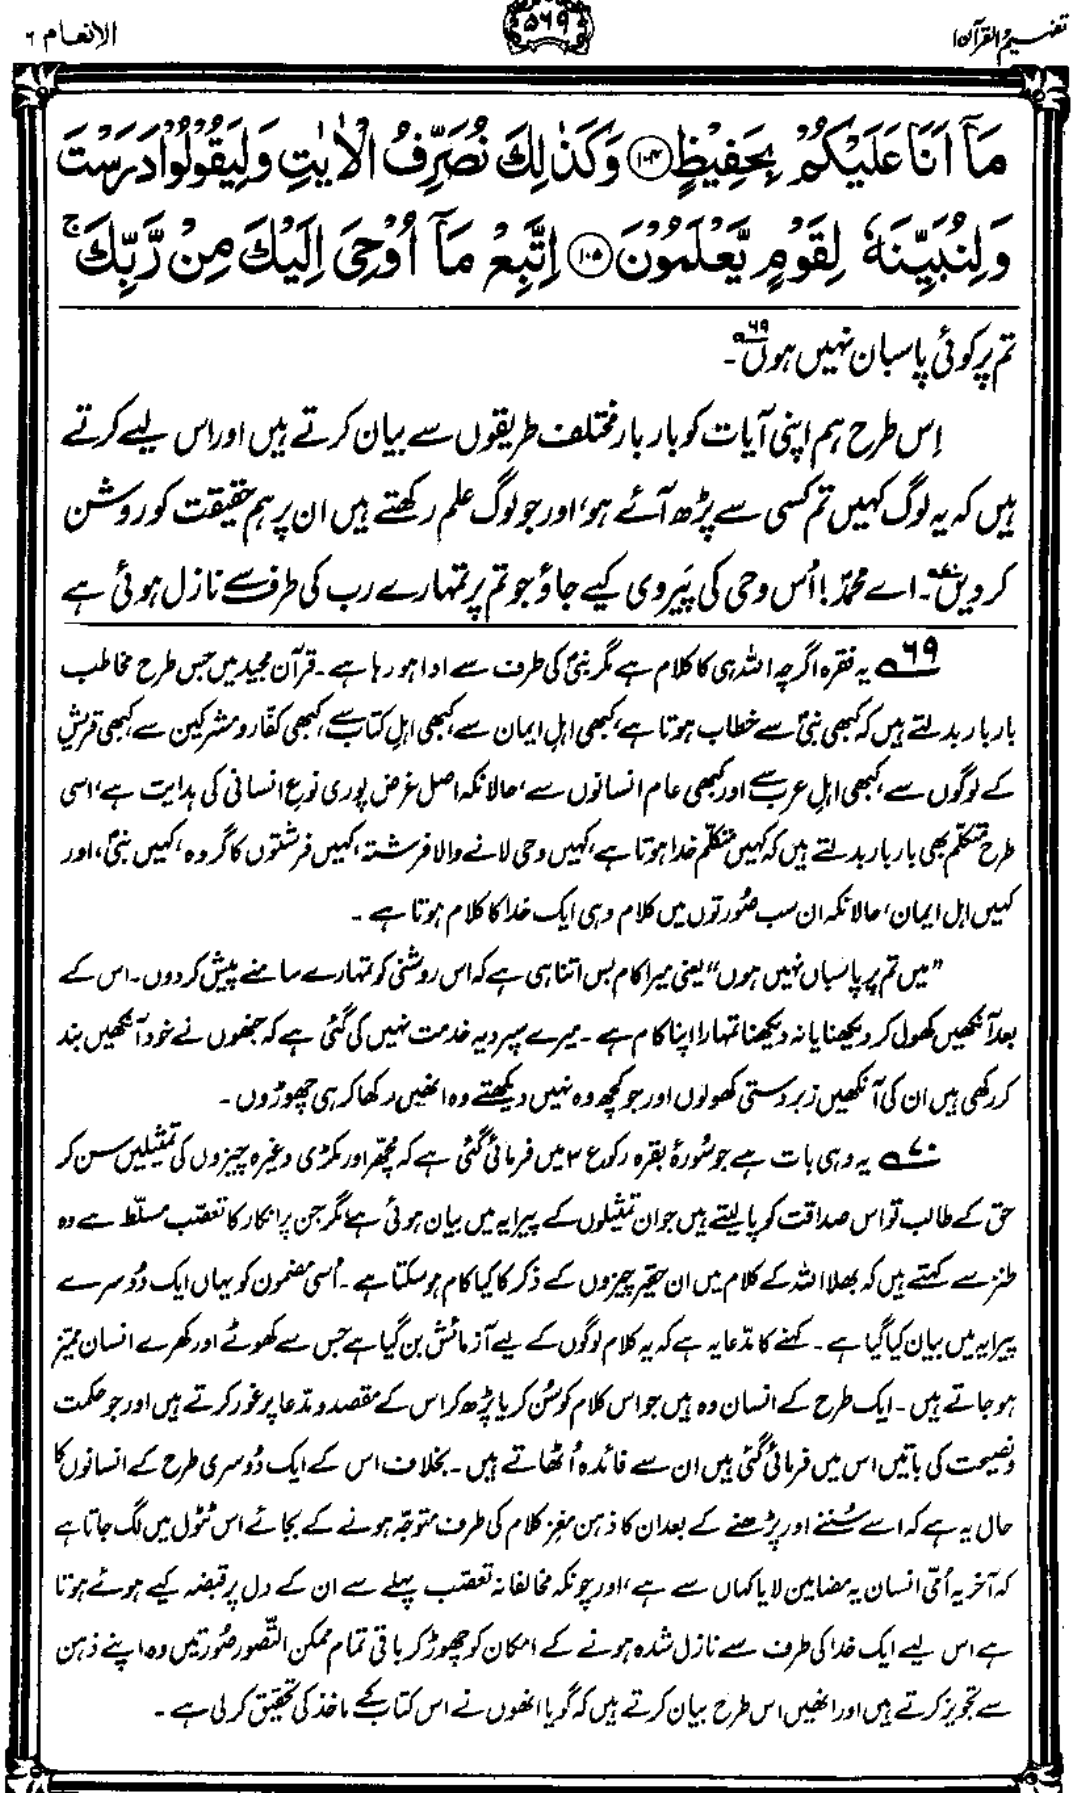 تفہیم القرآن ۱
۵۶۹
الانعام ۶
مَاۤ اَنَا عَلَیْكُمْ بِحَفِیْظٍ ﴿۱۰۴﴾ وَكَذٰلِكَ نُصَرِّفُ الْاٰیٰتِ وَلِیَقُوْلُوْا دَرَسْتَ
وَلِنُبَیِّنَهٗ لِقَوْمٍ یَّعْلَمُوْنَ ﴿۱۰۵﴾ اِتَّبِعْ مَاۤ اُوْحِیَ اِلَیْكَ مِنْ رَّبِّكَ ۚ
تم پر کوئی پاسبان نہیں ہوں۶۹۔
اِس طرح ہم اپنی آیات کو بار بار مختلف طریقوں سے بیان کرتے ہیں اور اس لیے کرتے
ہیں کہ یہ لوگ کہیں تم کسی سے پڑھ آئے ہو، اور جو لوگ علم رکھتے ہیں ان پر ہم حقیقت کو روشن
کر دیں۷۰۔ اے محمدؐ! اُس وحی کی پَیروی کیے جاؤ جو تم پر تمہارے رب کی طرف سے نازل ہوئی ہے
۶۹ یہ فقرہ اگرچہ اللہ ہی کا کلام ہے مگر نبیؐ کی طرف سے ادا ہو رہا ہے۔ قرآن مجید میں جس طرح مخاطب
بار بار بدلتے ہیں کہ کبھی نبیؐ سے خطاب ہوتا ہے، کبھی اہلِ ایمان سے، کبھی اہلِ کتاب سے، کبھی کفّار و مشرکین سے، کبھی قریش
کے لوگوں سے، کبھی اہلِ عرب سے اور کبھی عام انسانوں سے، حالانکہ اصل غرض پوری نوعِ انسانی کی ہدایت ہے، اسی
طرح متکلّم بھی بار بار بدلتے ہیں کہ کہیں متکلّم خدا ہوتا ہے، کہیں وحی لانے والا فرشتہ، کہیں فرشتوں کا گروہ، کہیں نبیؐ، اور
کہیں اہل ایمان، حالانکہ ان سب صُورتوں میں کلام وہی ایک خدا کا کلام ہوتا ہے۔
”میں تم پر پاسباں نہیں ہوں“ یعنی میرا کام بس اتنا ہی ہے کہ اس روشنی کو تمہارے سامنے پیش کر دوں۔ اس کے
بعد آنکھیں کھول کر دیکھنا یا نہ دیکھنا تمہارا اپنا کام ہے۔ میرے سپرد یہ خدمت نہیں کی گئی ہے کہ جنھوں نے خود آنکھیں بند
کر رکھی ہیں ان کی آنکھیں زبردستی کھولوں اور جو کچھ وہ نہیں دیکھتے وہ انھیں دکھا کر ہی چھوڑوں۔
۷۰ یہ وہی بات ہے جو سُورۂ بقرہ رکوع ۳ میں فرمائی گئی ہے کہ مچھّر اور مکڑی وغیرہ چیزوں کی تمثیلیں سن کر
حق کے طالب تو اس صداقت کو پا لیتے ہیں جو ان تمثیلوں کے پیرایہ میں بیان ہوئی ہے، مگر جن پر انکار کا تعصّب مسلّط ہے وہ
طنز سے کہتے ہیں کہ بھلا اللہ کے کلام میں ان حقیر چیزوں کے ذکر کا کیا کام ہو سکتا ہے۔ اُسی مضمون کو یہاں ایک دُوسرے
پیرایہ میں بیان کیا گیا ہے۔ کہنے کا مدّعا یہ ہے کہ یہ کلام لوگوں کے لیے آزمائش بن گیا ہے جس سے کھوٹے اور کھرے انسان ممیّز
ہو جاتے ہیں۔ ایک طرح کے انسان وہ ہیں جو اس کلام کو سُن کر یا پڑھ کر اس کے مقصد و مدّعا پر غور کرتے ہیں اور جو حکمت
و نصیحت کی باتیں اس میں فرمائی گئی ہیں ان سے فائدہ اُٹھاتے ہیں۔ بخلاف اس کے ایک دُوسری طرح کے انسانوں کا
حال یہ ہے کہ اسے سُننے اور پڑھنے کے بعد ان کا ذہن مغزِ کلام کی طرف متوجّہ ہونے کے بجائے اس ٹٹول میں لگ جاتا ہے
کہ آخر یہ اُمّی انسان یہ مضامین لایا کہاں سے ہے، اور چونکہ مخالفانہ تعصّب پہلے سے ان کے دل پر قبضہ کیے ہوئے ہوتا
ہے اس لیے ایک خدا کی طرف سے نازل شدہ ہونے کے امکان کو چھوڑ کر باقی تمام ممکن التّصور صُورتیں وہ اپنے ذہن
سے تجویز کرتے ہیں اور انھیں اس طرح بیان کرتے ہیں کہ گویا انھوں نے اس کتاب کے ماخذ کی تحقیق کر لی ہے۔